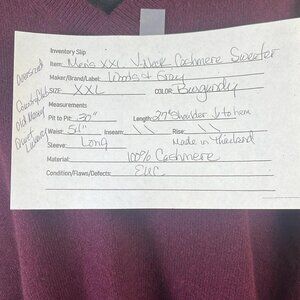 Inventory Slip
Item: Men's XXL V-Neck Cashmere Sweater
Maker/Brand/Label:
SIZE: XXL COLOR: Burgundy
Measurements
Pit to Pit: 30" Length: 27" Shoulder to hem
Waist: 51" Inseam: \ \ Rise: \ \
Sleeve: Long Made in Thailand
Material: 100% Cashmere
Condition/Flaws/Defects: EUC
Oversized
Country Club
Old Money
Quiet